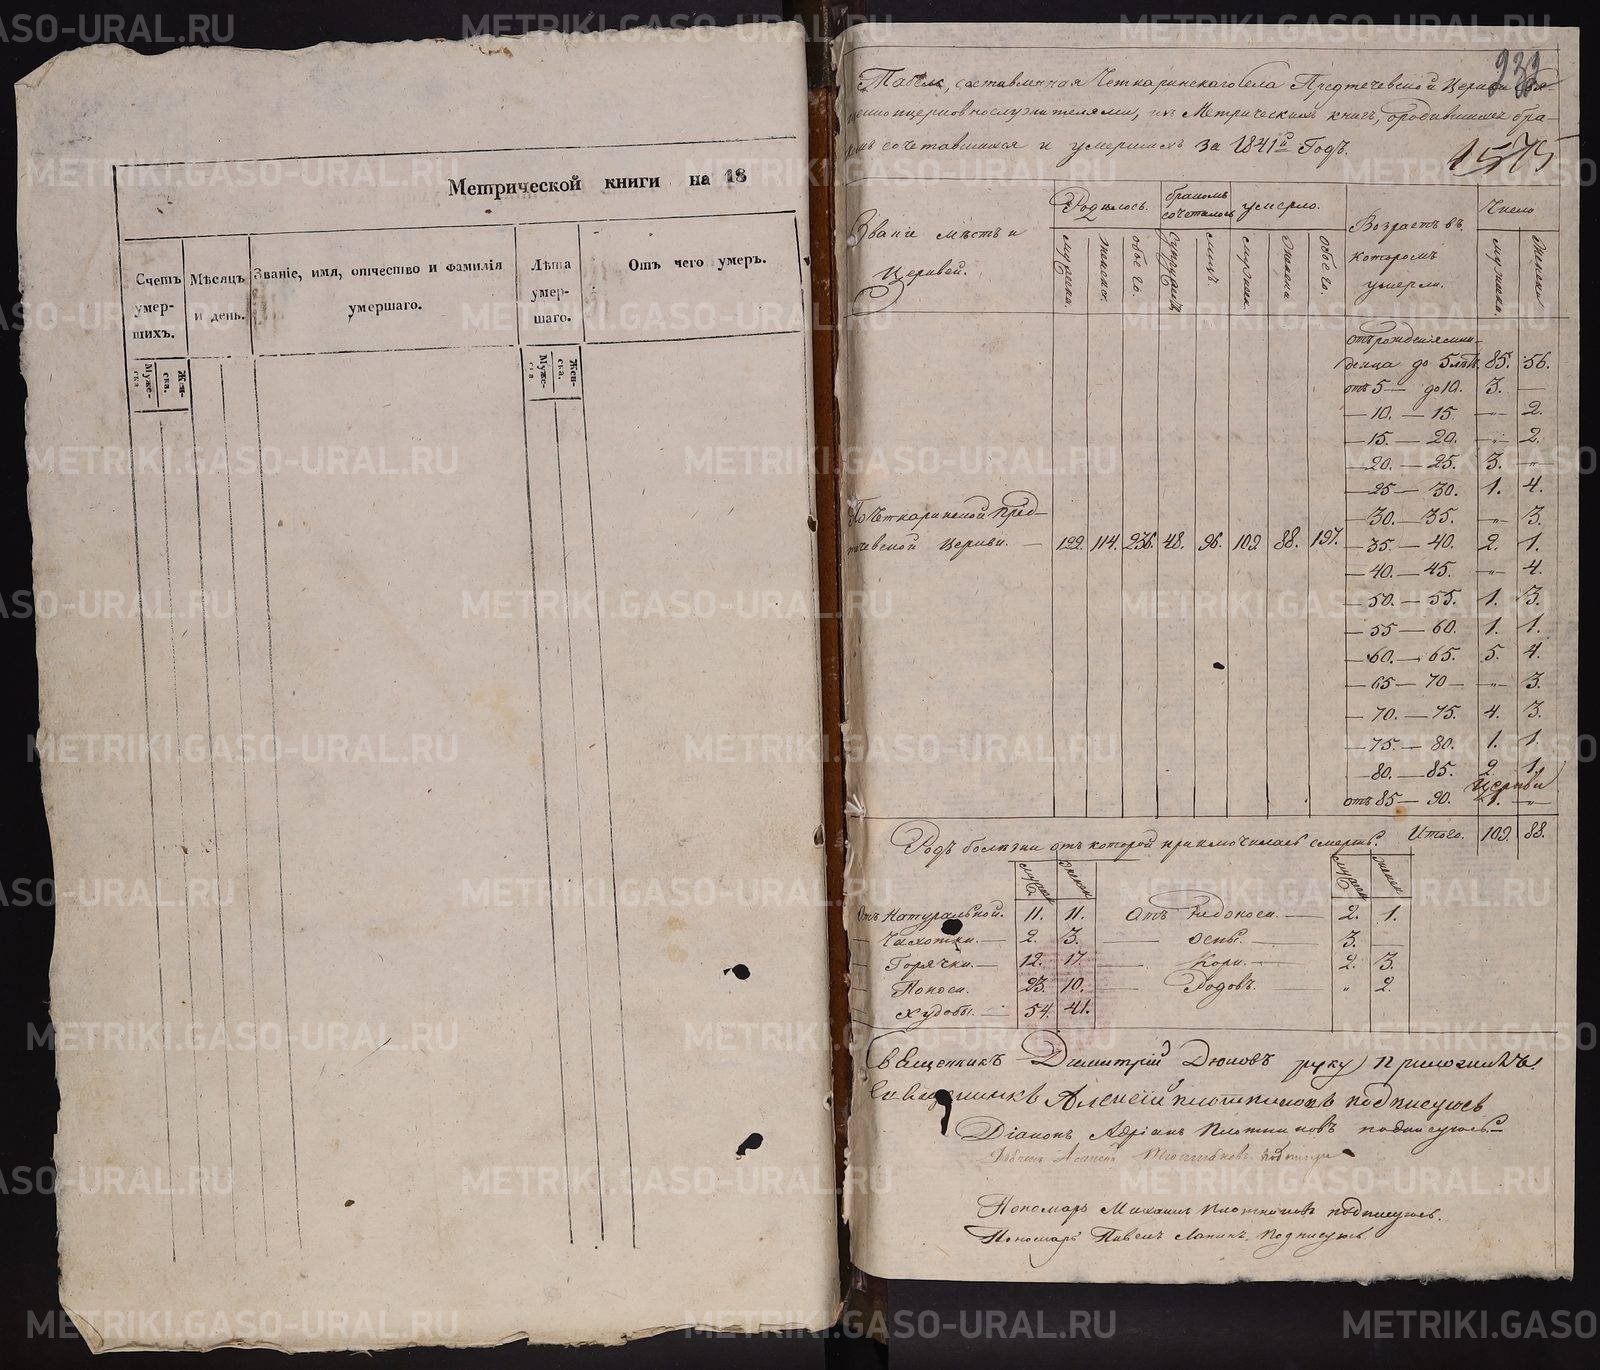 Метрической книги на 18
Счетъ умер-шихъ.
Мѣсяцъ и день.
Званіе, имя, отчество и фамилія умершаго.
Лѣта умер-шаго.
Отъ чего умеръ.
Муже-ска
Жен-ска.
Муже-ска
Жен-ска.
232
Табель, составленная Четкаринскаго села Предтечевской Церкви Свя-
щенноцерковнослужителями, изъ Метрическихъ книгъ, о родившихся бра-
комъ сочетавшихся и умершихъ за 1841й Годъ.
1575
Званіе мѣстъ и Церквей.
Родилось.
бракомъ сочеталось
умерло.
Возрастъ въ которомъ умерли.
Число
мужеска. женска. обоего. супружествъ лицъ мужеска женска обоего. мужеска. женска
отъ рожденія мла-
денца до 5 лѣтъ. 85. 56.
отъ 5 — до 10. 3. —
— 10. — 15. —„— 2.
— 15. — 20. —„— 2.
— 20. — 25. 3. —„—
— 25 — 30. 1. 4.
— 30. — 35. —„— 3.
По Четкаринской Пред-
течевской Церкви. — 122. 114. 236. 48. 96. 109. 88. 197. — 35. — 40. 2. 1.
— 40. — 45. —„— 4.
— 50. — 55. 1. 3.
— 55 — 60. 1. 1.
— 60. — 65. 5. 4.
— 65 — 70 — —„— 3.
— 70. — 75. 4. 3.
— 75. — 80. 1. 1.
— 80. — 85. 2. 1.
Церкви
отъ 85 — 90. 1. —„—
Итого. 109. 88.
Родъ болѣзни отъ которой приключилась смерть.
мужеск женск мужеск женск
Отъ Натуральной. 11. 11. Отъ Недоноси. — 2. 1.
— Чахотки. — 2. 3. — Оспы. — 3. —
— Горячки. — 12. 17. — Кори. — 2. 3.
— Поноси. 23. 10. — Родовъ. — „ 2.
— Худобы. — 54. 41.
Священникъ Димитрій Дюковъ руку приложилъ.
Священникъ Алексій Плотниковъ подписуюсь
Діаконъ Адріанъ Плотниковъ подписуюсь
Пономарь Михаилъ Плотниковъ подписуюсь.
Пономарь Павелъ Лапинъ. Подписуюсь
METRIKI.GASO-URAL.RU